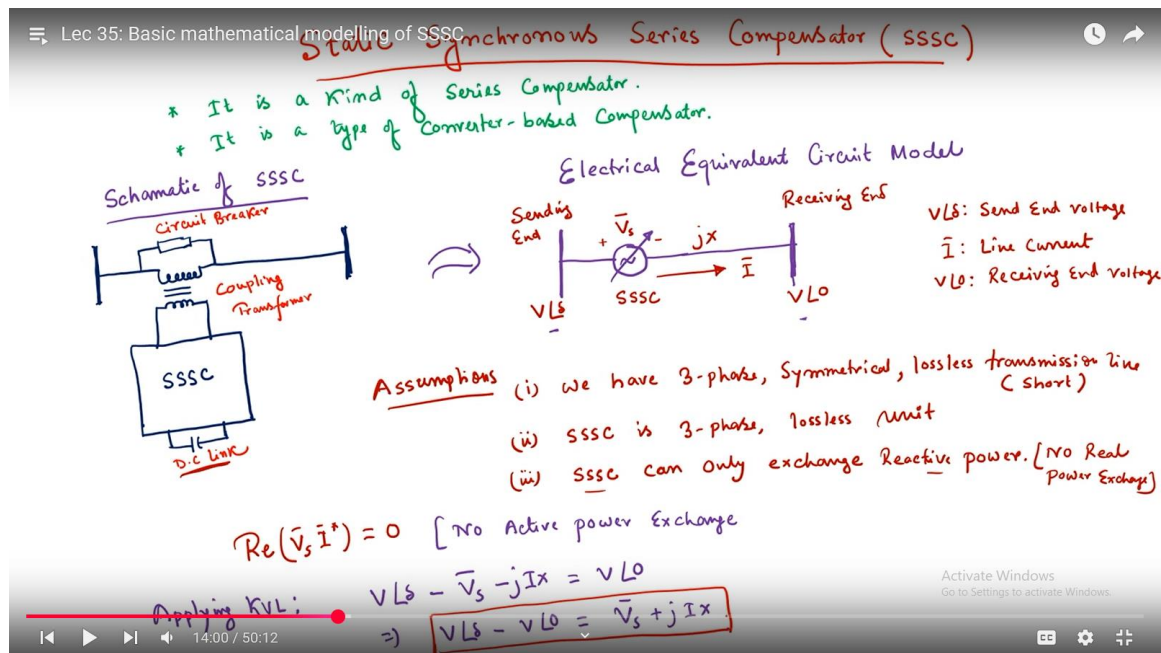 Lec 35: Basic mathematical modelling of SSSC
Static Synchronous Series Compensator (SSSC)
* It is a kind of Series Compensator.
* It is a type of Converter-based Compensator.
Schamatic of SSSC
Circuit Breaker
Coupling
Transformer
SSSC
D.C Link
Electrical Equivalent Circuit Model
Sending
End
V̄s
+ -
jx
Ī
SSSC
V∠δ
Receiving End
V∠0
V∠δ: Send End voltage
Ī: Line Current
V∠0: Receiving End voltage
Assumptions (i) We have 3-phase, Symmetrical, lossless transmission line
(short)
(ii) SSSC is 3-phase, lossless unit
(iii) SSSC can only exchange Reactive power. [No Real
Power Exchange]
Re(V̄s Ī*) = 0 [No Active power Exchange
Applying KVL: V∠δ - V̄s - jIx = V∠0
=) V∠δ - V∠0 = V̄s + jIx
Activate Windows
Go to Settings to activate Windows.
14:00 / 50:12
CC